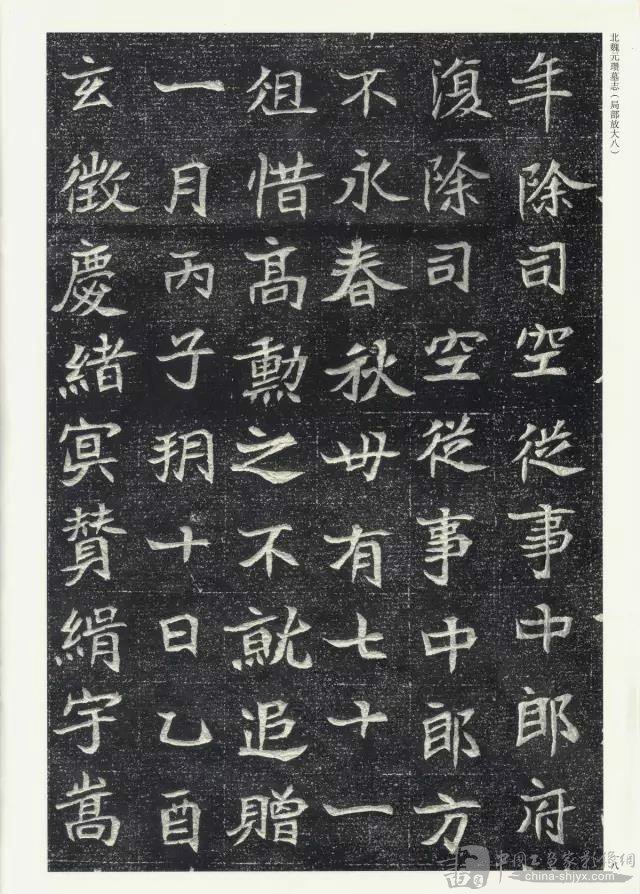 北魏元璨墓志（局部放大八）
年除司空從事中郎府
復除司空從事中郎方
不永春秋卅有七十一
徂惜高勳之不就追贈
一月丙子朔十日乙酉
玄徵慶緒冥贊宇嵩
八
中国工美家影像網
china-shjyx.com